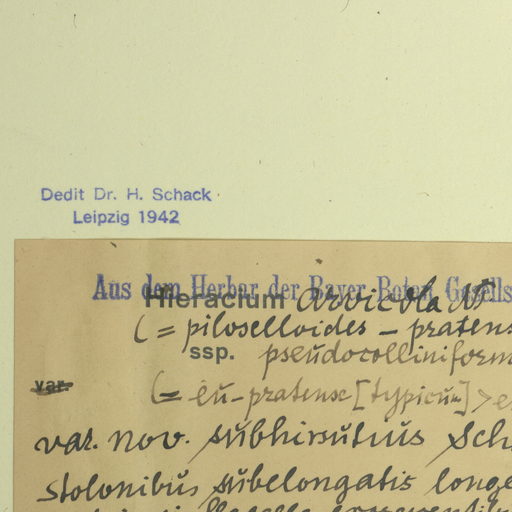 Dedit Dr. H. Schack
Leipzig 1942
Aus dem Herbar der Bayer. Botan. Gesells
Hieracium arvicola NP
(= piloselloides – pratens
ssp. pseudocolliniform
var.
(= eu-pratense [typicum] > e
var. nov. subhirsutius Sch
stolonibus subelongatis longe